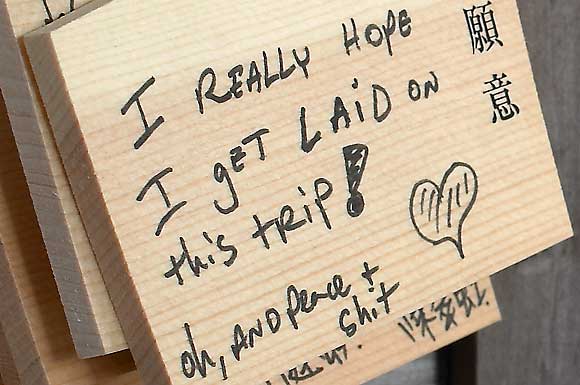 願意
I REALLY HOPE
I gET LAiD ON
this tRip!
oh, AND peace +
shit